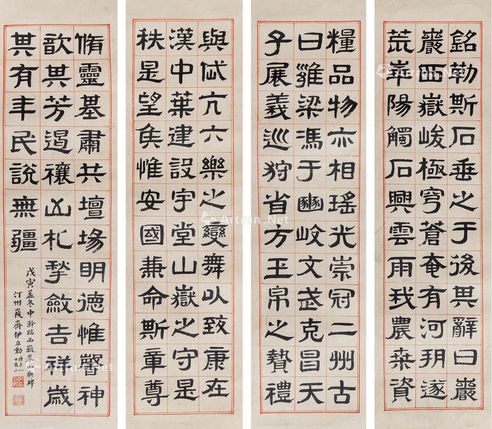 銘勒斯石垂之于後其辭曰巖
巖西嶽峻極穹蒼奄有河朔遂
荒崋陽觸石興雲雨我農桒資
糧品物亦相瑤光崇冠二州古
曰雝梁馮于豳岐文武克昌天
子展義巡狩省方王帛之贄禮
與岱亢六樂之變舞以致康在
漢中葉建設宇堂山嶽之守是
秩是望矦惟安國兼命斯章尊
脩靈基肅共壇場明德惟馨神
歆其芳遏禳凶札揫斂吉祥歲
其有年民說無疆
戊寅孟冬中澣臨西嶽華山廟碑
汀州峻齋伊立勳
Artron.Net